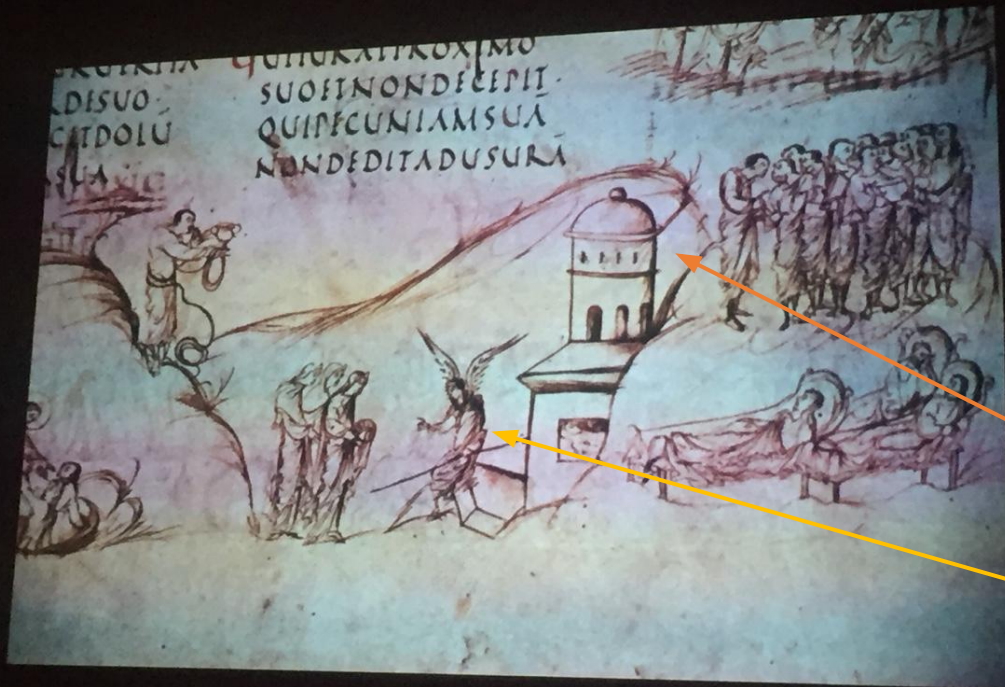 DESUO
GITDOLŪ
SUA
QUIIURATPROXIMO
SUOETNONDECEPIT·
QUIPECUNIAMSUĀ
NONDEDITADUSURĀ